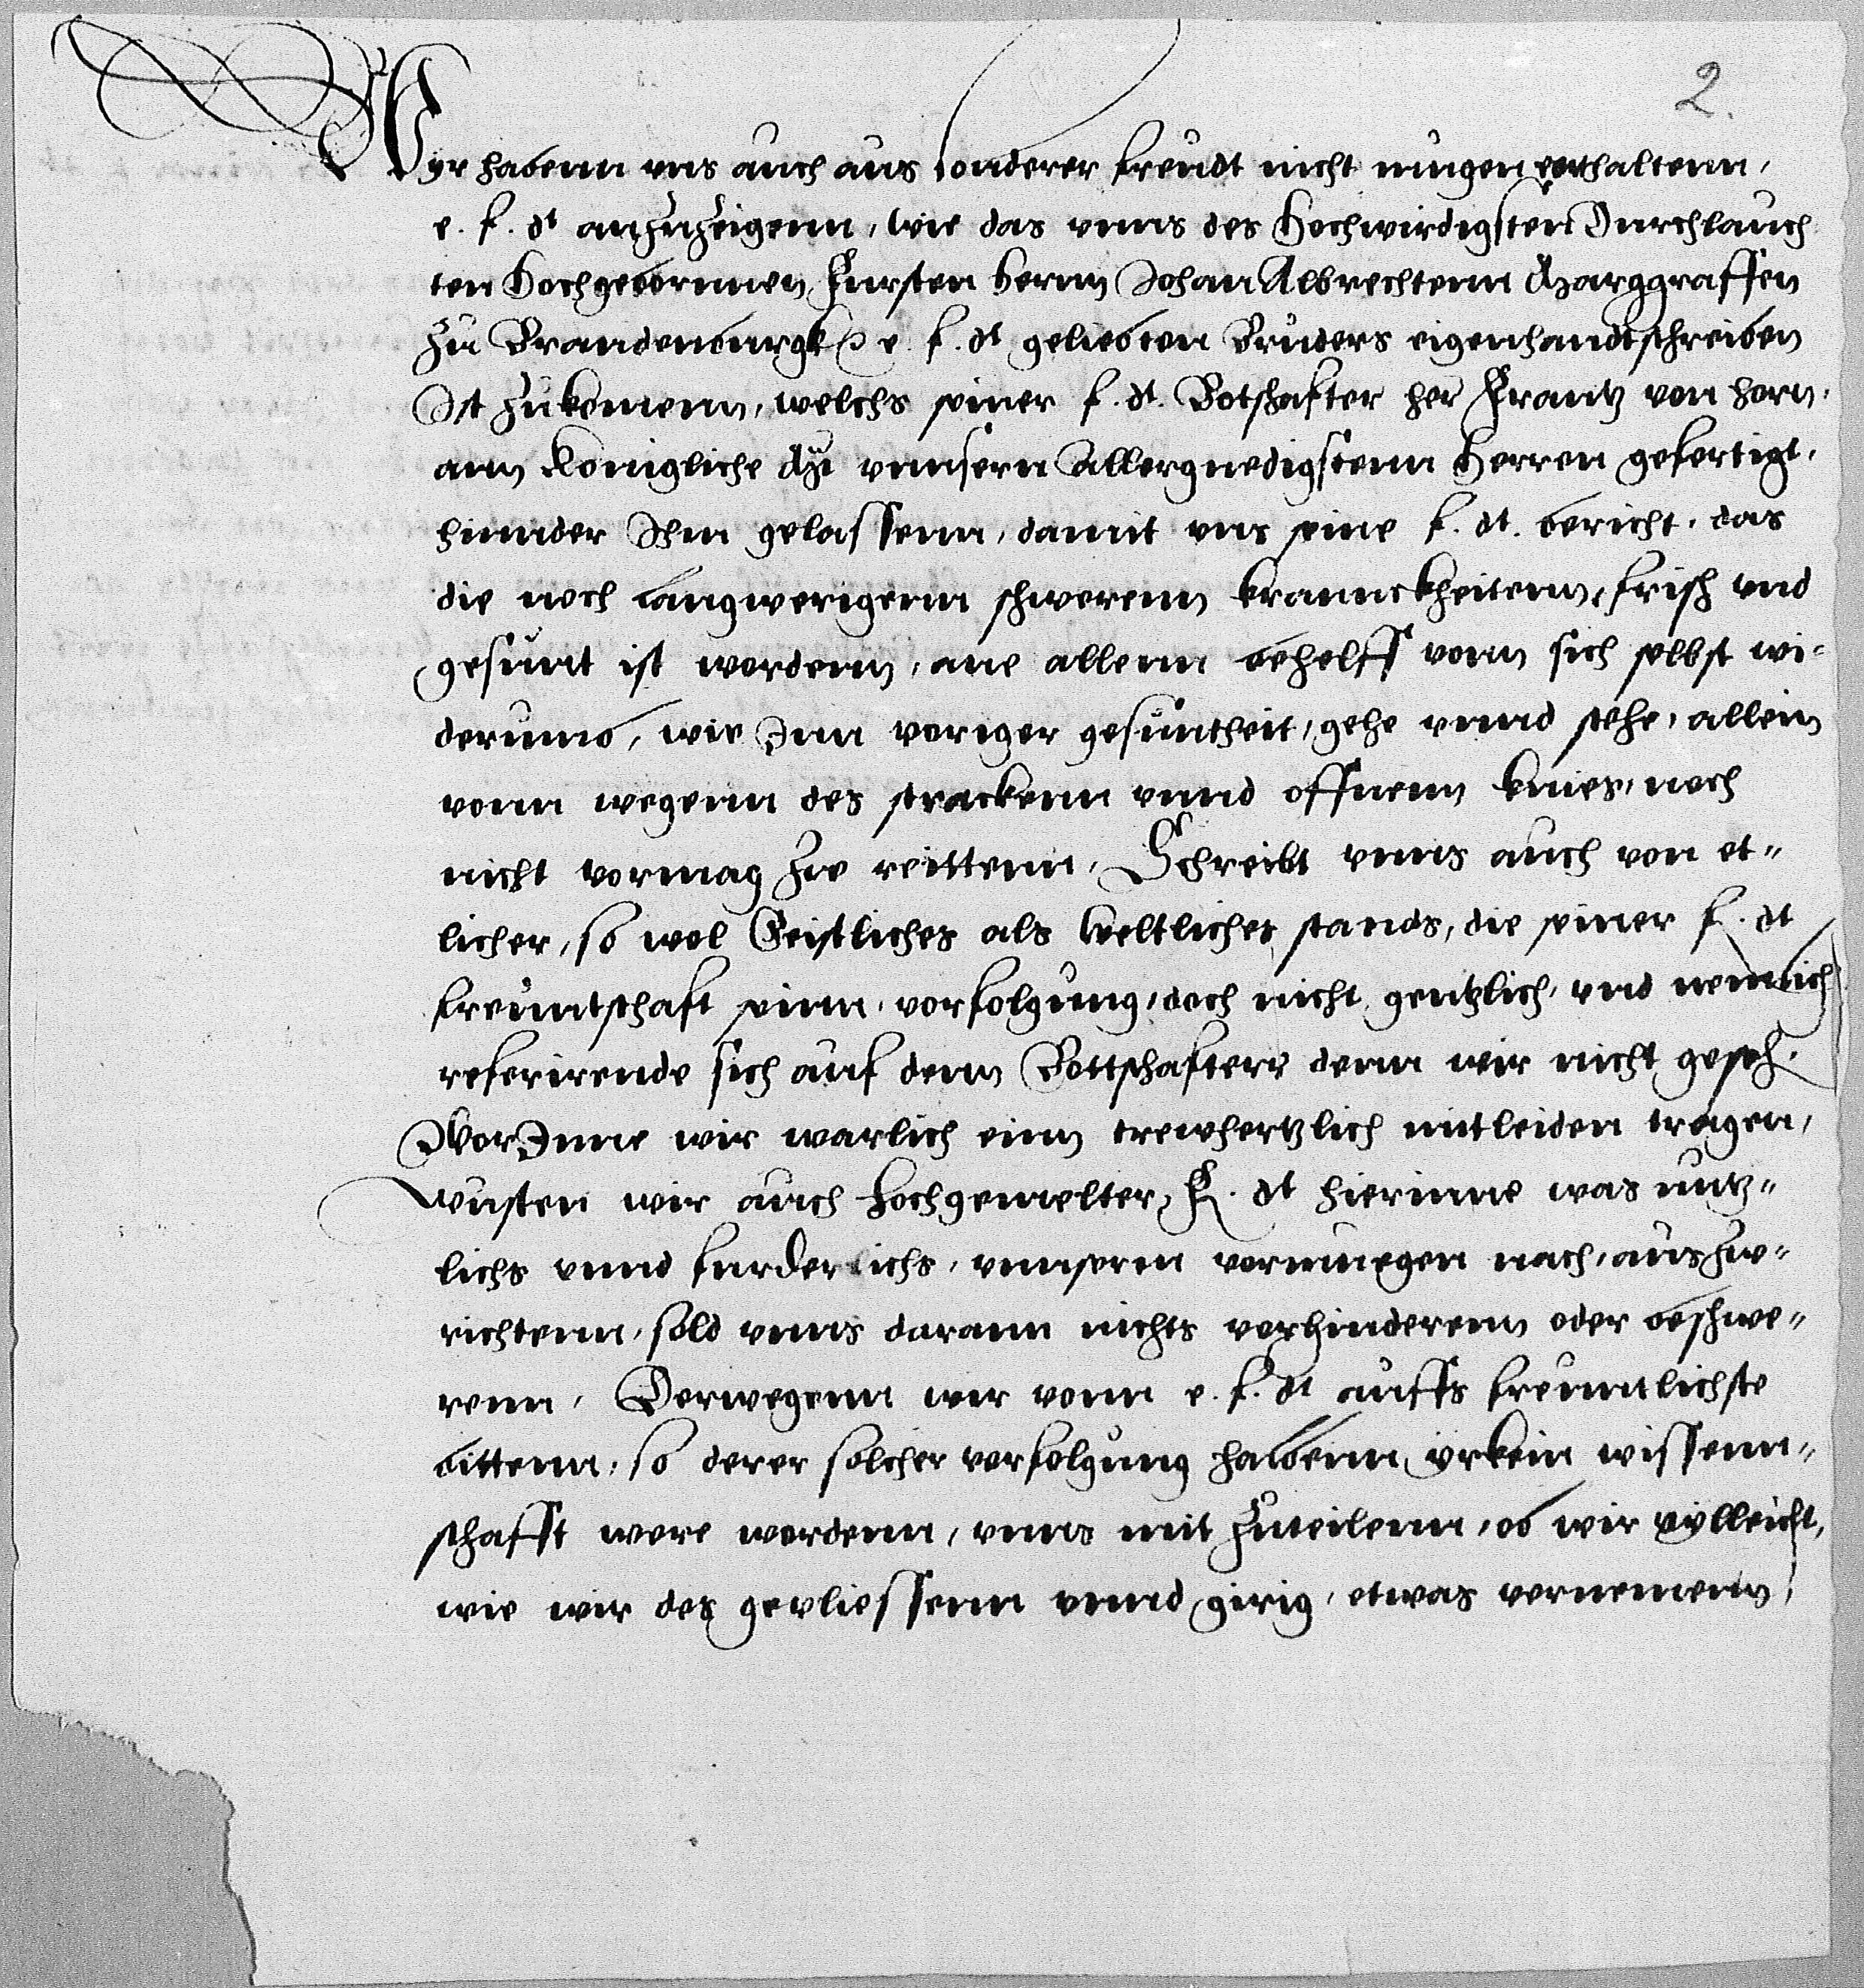 2.
Wyr habenn vns auch aus sonderer freudt nicht mugen enthaltenn,
e. f. dt anzuzeigenn, wie das vnns des Hochwirdigsten Durchlauch
ten Hochgebornnen Fursten Hernn Johan Albrechtenn Marggraffen
zu Brandenburgk e. f. dt geliebten Bruders eigenhandtschreiben
Ist zukomenn, welchs seiner f. dt. Botschafter her Frantz von horn,
ann Konigliche Mt vnnsern Allergnedigstenn Herren gefertigt,
hinnder Ihm gelassenn, damit vns seine f. dt. bericht, das
die noch langwerigenn schwerenn kranncktheitenn, frisch vnd
gesunt ist wordenn, ane allenn behelff vonn sich selbst wi-
derumb, wie Inn voriger gesuntheit, gehe vnnd stehe, allein
vonn wegenn des strackenn vnnd offnenn knies, noch
nicht vormag zw reittenn, Schreibt vnns auch von et-
licher, so wol Geistliches als Weltliches stands, die seiner f. dt
freuntschaft seinn, vorfolgung, doch nicht gentzlich, vnd nemlich
referirende sich auf denn Bottschafterr denn wir nicht geseh.
WorInne wir warlich einn trewhertzlich mitleiden tragen,
wusten wir auch hochgemelter, F. dt hierinne was nutz-
lichs vnnd furderlichs, vnnserm vormuegen nach, auszw-
richtenn, sold vnns darann nichts vorhinderenn oder beschwe-
renn, Derwegenn wir vonn e. f. dt auffs freuntlichste
bittenn, so derer solcher vorfolgung habenn yrkein wissenn-
schafft were wordenn, vnns mit zuteilenn, ob wir vylleicht,
wie wir des gevliessenn vnnd girig, etwas vernemenn,